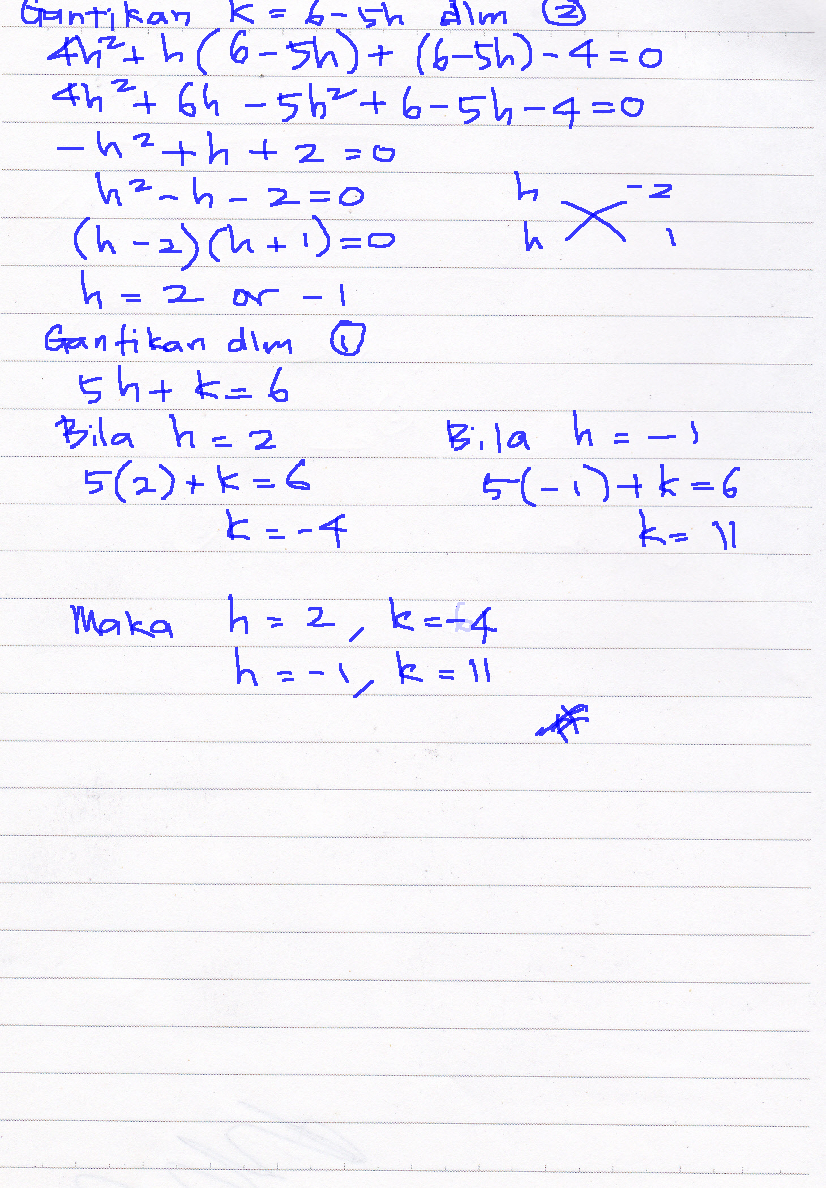 Gantikan k = 6-5h dlm ②
4h² + h(6-5h) + (6-5h) - 4 = 0
4h² + 6h - 5h² + 6 - 5h - 4 = 0
-h² + h + 2 = 0
h² - h - 2 = 0 h -2
(h - 2)(h + 1) = 0 h 1
h = 2 or -1
Gantikan dlm ①
5h + k = 6
Bila h = 2 Bila h = -1
5(2) + k = 6 5(-1) + k = 6
k = -4 k = 11
Maka h = 2, k = -4
h = -1, k = 11
#